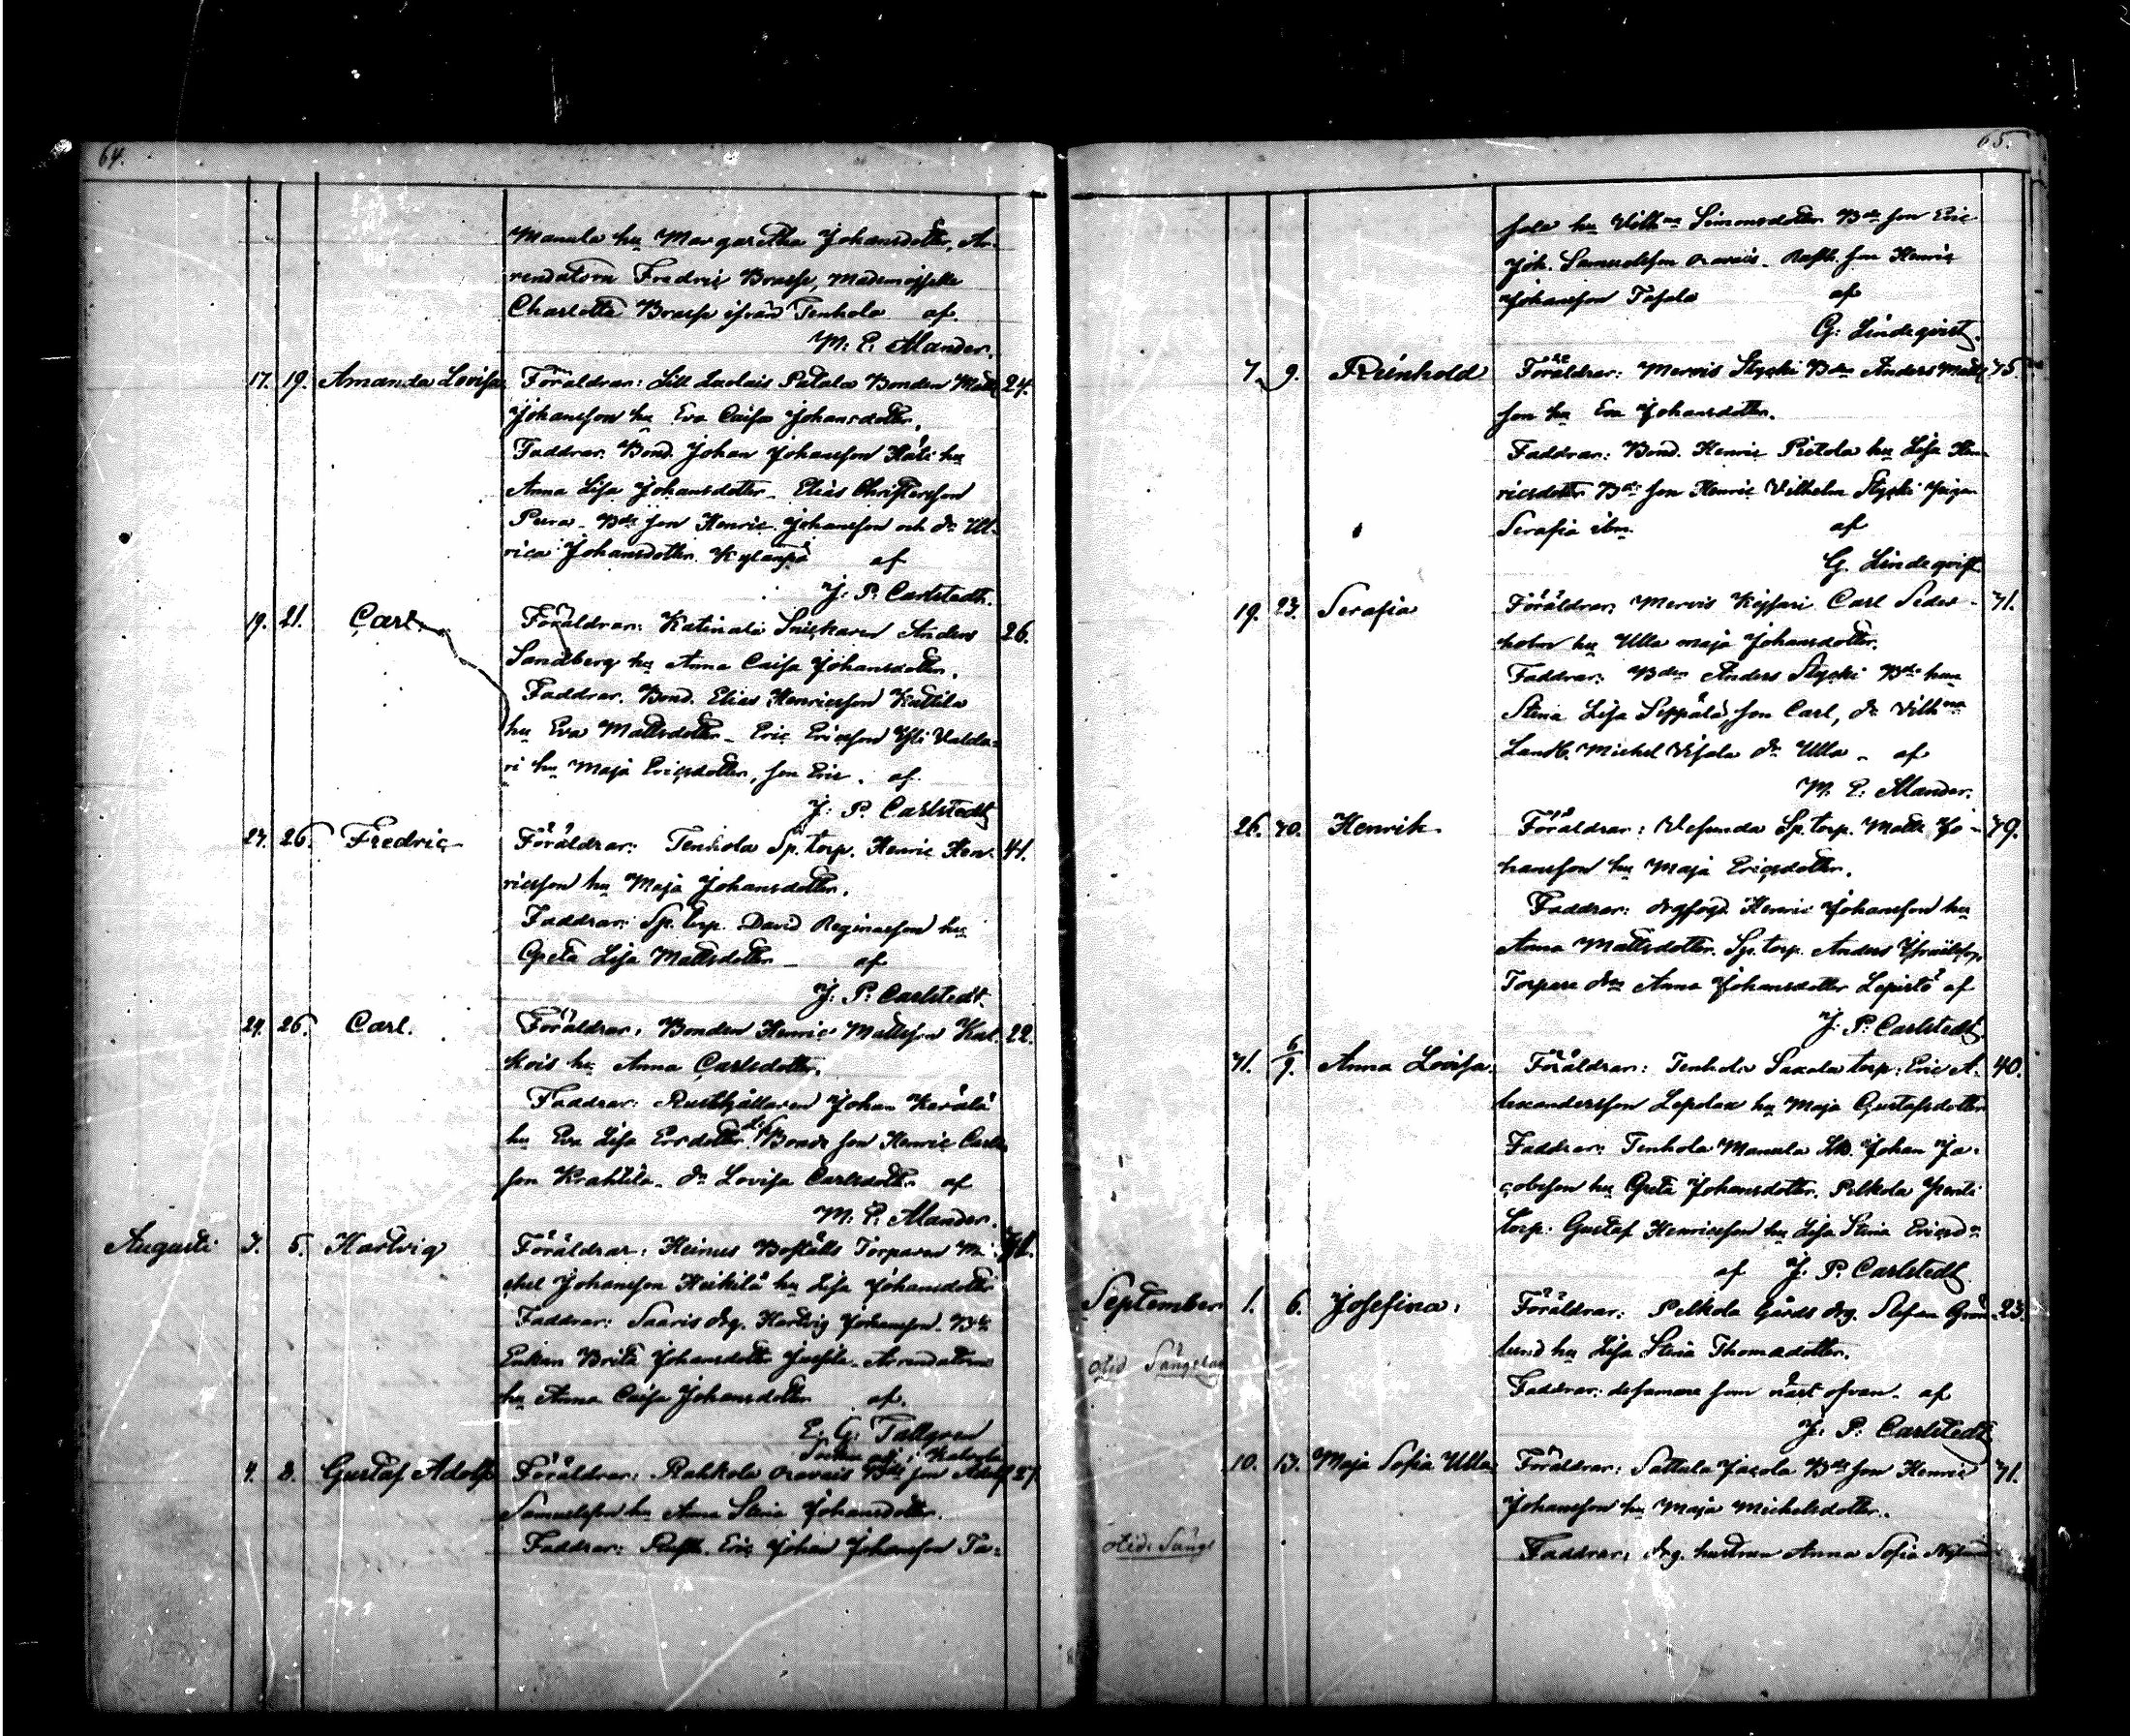 64.
Manula hu Margaretha Johansdotter, Ar-
rendatorn Fredric Brasse, Mademoiselle
Charlotta Brasse ifrån Tenhola af
M. E. Alander.
17. 19. Amanda Lovisa Föräldrar: Lill Laolais Patala Bonden Matts 24.
Johansson hu Eva Caisa Johansdotter.
Faddrar. Bond. Johan Johansson hu
Anna Lisa Johansdotter. Elias Christersson
Pura. Bde son Henric Johansson och dr Ul-
rica Johansdotter. Kylänpä af
J. P. Carlstedt.
19. 21. Carl. Föräldrar: Katinala Snickaren Anders 26.
Sandberg hu Anna Caisa Johansdotter.
Faddrar. Bond. Elias Henricsson Kattila
hu Eva Mattsdotter. Eric Ericsson Yli Valda-
ri hu Maja Ericsdotter, son Eric. af
J. P. Carlstedt
23. 26. Fredric Föräldrar: Tenhola Sp. torp. Henric Hen- 41.
ricsson hu Maja Johansdotter.
Faddrar: Sp. torp. David Reginasson hu
Greta Lisa Mattsdotter af
J. P. Carlstedt.
24. 26. Carl. Föräldrar: Bonden Henric Mattsson Kal- 22.
kois hu Anna Carlsdotter.
Faddrar: Rusthållaren Johan Kerälä
hu Eva Lisa Ersdotter Bonde son Henric Carls-
son Krahtila. dr Lovisa Carlsdotter af
M. E. Alander.
Augusti 3. 5. Hartvig Föräldrar: Heinus Boställs Torparen Mi-
chel Johansson Heikilä hu Lisa Johansdotter
Faddrar: Saaris drg. Hartvig Johansson. Bde
Enkan Brita Johansdotter Jussila. Arrendatorns
hu Anna Caisa Johansdotter af
E. G. Tallgren
4. 8. Gustaf Adolf Föräldrar: Rahkola Oravais Bde son Adolf 27.
Samuelsson hu Anna Stina Johansdotter.
Faddrar: Rusth. Eric Johan Johansson Ta-
65.
sala hu Vilhna Simonsdotter Bde son Eric
Joh. Samuelsson Oravais. Rusth. son Henric
Johansson Tasala af
G. Lindeqvist.
7. 9. Reinhold Föräldrar: Mervis Stycki Bden Anders Matts- 35.
son hu Eva Johansdotter.
Faddrar: Bond. Henric Pietola hu Lisa Hen-
ricsdotter Bde son Henric Vilhelm Stycki Pigan
Serafia ibm. af
G. Lindeqvist.
19. 23. Serafia Föräldrar: Mervis Kessari Carl Seder- 31.
holm hu Ulla Maja Johansdotter.
Faddrar: Bden Anders Stycki Bde hun
Stina Lisa Seppälä, son Carl, dr Vilhna
Landb. Michel Visala dr Ulla. af
M. E. Alander.
26. 30. Henrik Föräldrar: Vesunda Sp. torp. Matts Jo- 39.
hansson hu Maja Ericsdotter.
Faddrar: Henric Johansson hu
Anna Mattsdotter. Sp. torp. Anders
Torpare drs Anna Johansdotter Lepistö af
J. P. Carlstedt
31. 6/9. Anna Lovisa. Föräldrar: Tenhola Saxala torp. Eric A- 40.
lexandersson Lepolax hu Maja Gustafsdotter
Faddrar: Tenhola Manula Johan Ja-
cobsson hu Greta Johansdotter. Pelkola
torp. Gustaf Henricsson hu Lisa Stina Ericsdr
af J. P. Carlstedt
September 1. 6. Josefina. Föräldrar: Pelkola Gårds drg. Stefan Grön- 23.
lund hu Lisa Stina Thomadotter.
Faddrar: desamma som näst ofvan. af
J. P. Carlstedt
10. 13. Maja Sofia Ulla Föräldrar: Sattula Jacola Bde son Henric 31.
Johansson hu Maja Michelsdotter.
Faddrar: drg. hustrun Anna Sofia